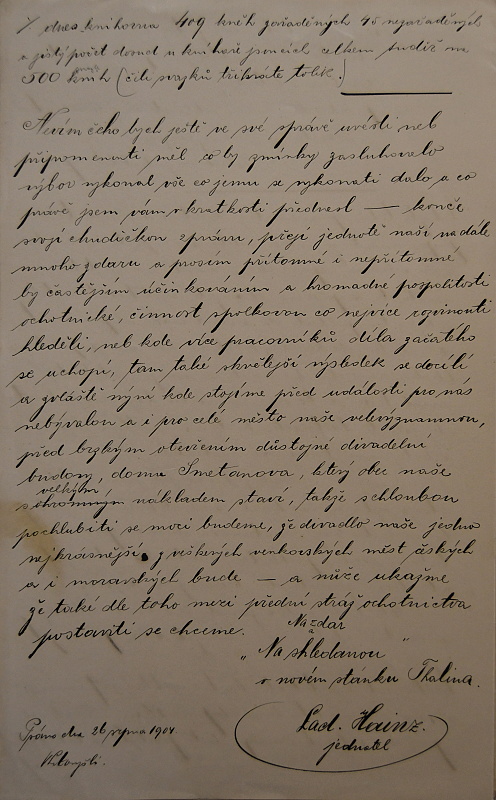 dnes knihovna 409 kněh zařaděných 45 nezařaděných
a jistý počet domed u knihaře jsoucích celkem tudíž na
500 knih (čili svazků třikráte tolik.)
Nevím čeho bych ještě ve své zprávě uvésti neb
připomenouti měl co by zmínky zasluhovalo
výbor vykonal vše co jemu se vykonati dalo a co
právě jsem vám v krátkosti přednesl — konče
svoji chudičkou zprávu, přeji jednotě naší na dále
mnoho zdaru a prosím přítomné i nepřítomné
by častějším účinkováním a hromadné pospolitosti
ochotnické, činnost spolkovou co nejvíce rozvinouti
hleděli, neb kde více pracovníků díla začatého
se uchopí, tam také skvělejší výsledek se docílí
a zvláště nyní kde stojíme před událostí pro nás
nebývalou a i pro celé město naše velevýznamnou,
před brzkým otevřením důstojné divadelní
budovy, domu Smetanova, který obec naše
velkým
nákladem staví, takže s chloubou
pochlubiti se moci budeme, že divadlo naše jedno
nejkrásnější z veškerých venkovských měst českých
a i moravských bude — a nuže ukažme
že také dle toho mezi přední stráž ochotnictva
postaviti se chceme.
Na zdar
a
„Na shledanou"
v novém stánku Thalina.
Psáno dne 26 srpna 1904.
Lad. Hainz.
jednatel